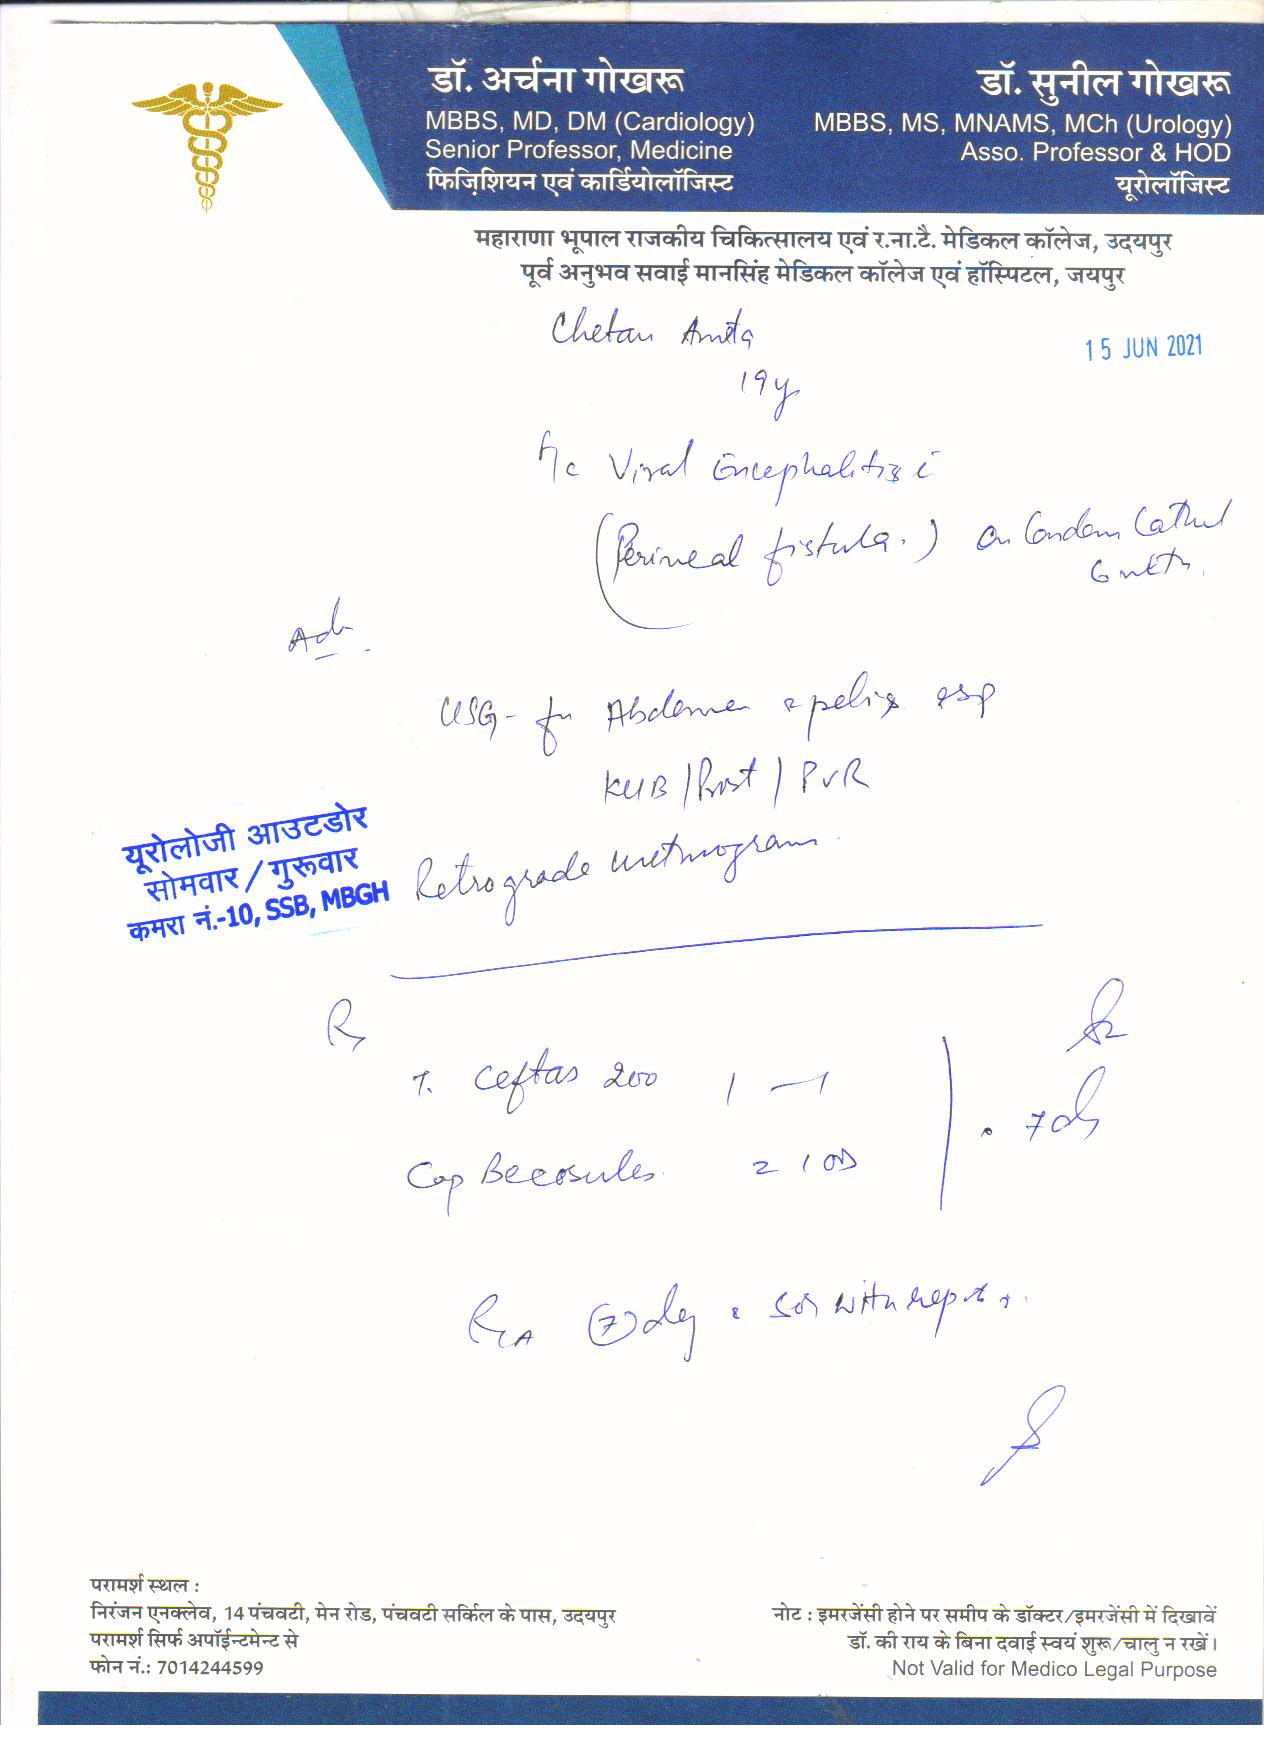 डॉ. अर्चना गोखरू
MBBS, MD, DM (Cardiology)
Senior Professor, Medicine
फिज़िशियन एवं कार्डियोलॉजिस्ट
डॉ. सुनील गोखरू
MBBS, MS, MNAMS, MCh (Urology)
Asso. Professor & HOD
यूरोलॉजिस्ट
महाराणा भूपाल राजकीय चिकित्सालय एवं र.ना.टै. मेडिकल कॉलेज, उदयपुर
पूर्व अनुभव सवाई मानसिंह मेडिकल कॉलेज एवं हॉस्पिटल, जयपुर
Chetan
15 JUN 2021
19y
Viral Encephalitis c
(Perineal fistula.) on Condom Cathe
Adv.
USG - for Abdomen & pelvis esp
KUB / Prost / PVR
Retrograde urethrogram.
यूरोलोजी आउटडोर
सोमवार / गुरूवार
कमरा नं.-10, SSB, MBGH
Rx
T. Ceftas 200 1 — 1
Cap Becosules 1 OD
7d
R/A (7) day & SOS with report.
परामर्श स्थल :
निरंजन एनक्लेव, 14 पंचवटी, मेन रोड, पंचवटी सर्किल के पास, उदयपुर
परामर्श सिर्फ अपॉईन्टमेन्ट से
फोन नं.: 7014244599
नोट : इमरजेंसी होने पर समीप के डॉक्टर/इमरजेंसी में दिखावें
डॉ. की राय के बिना दवाई स्वयं शुरू/चालु न रखें।
Not Valid for Medico Legal Purpose